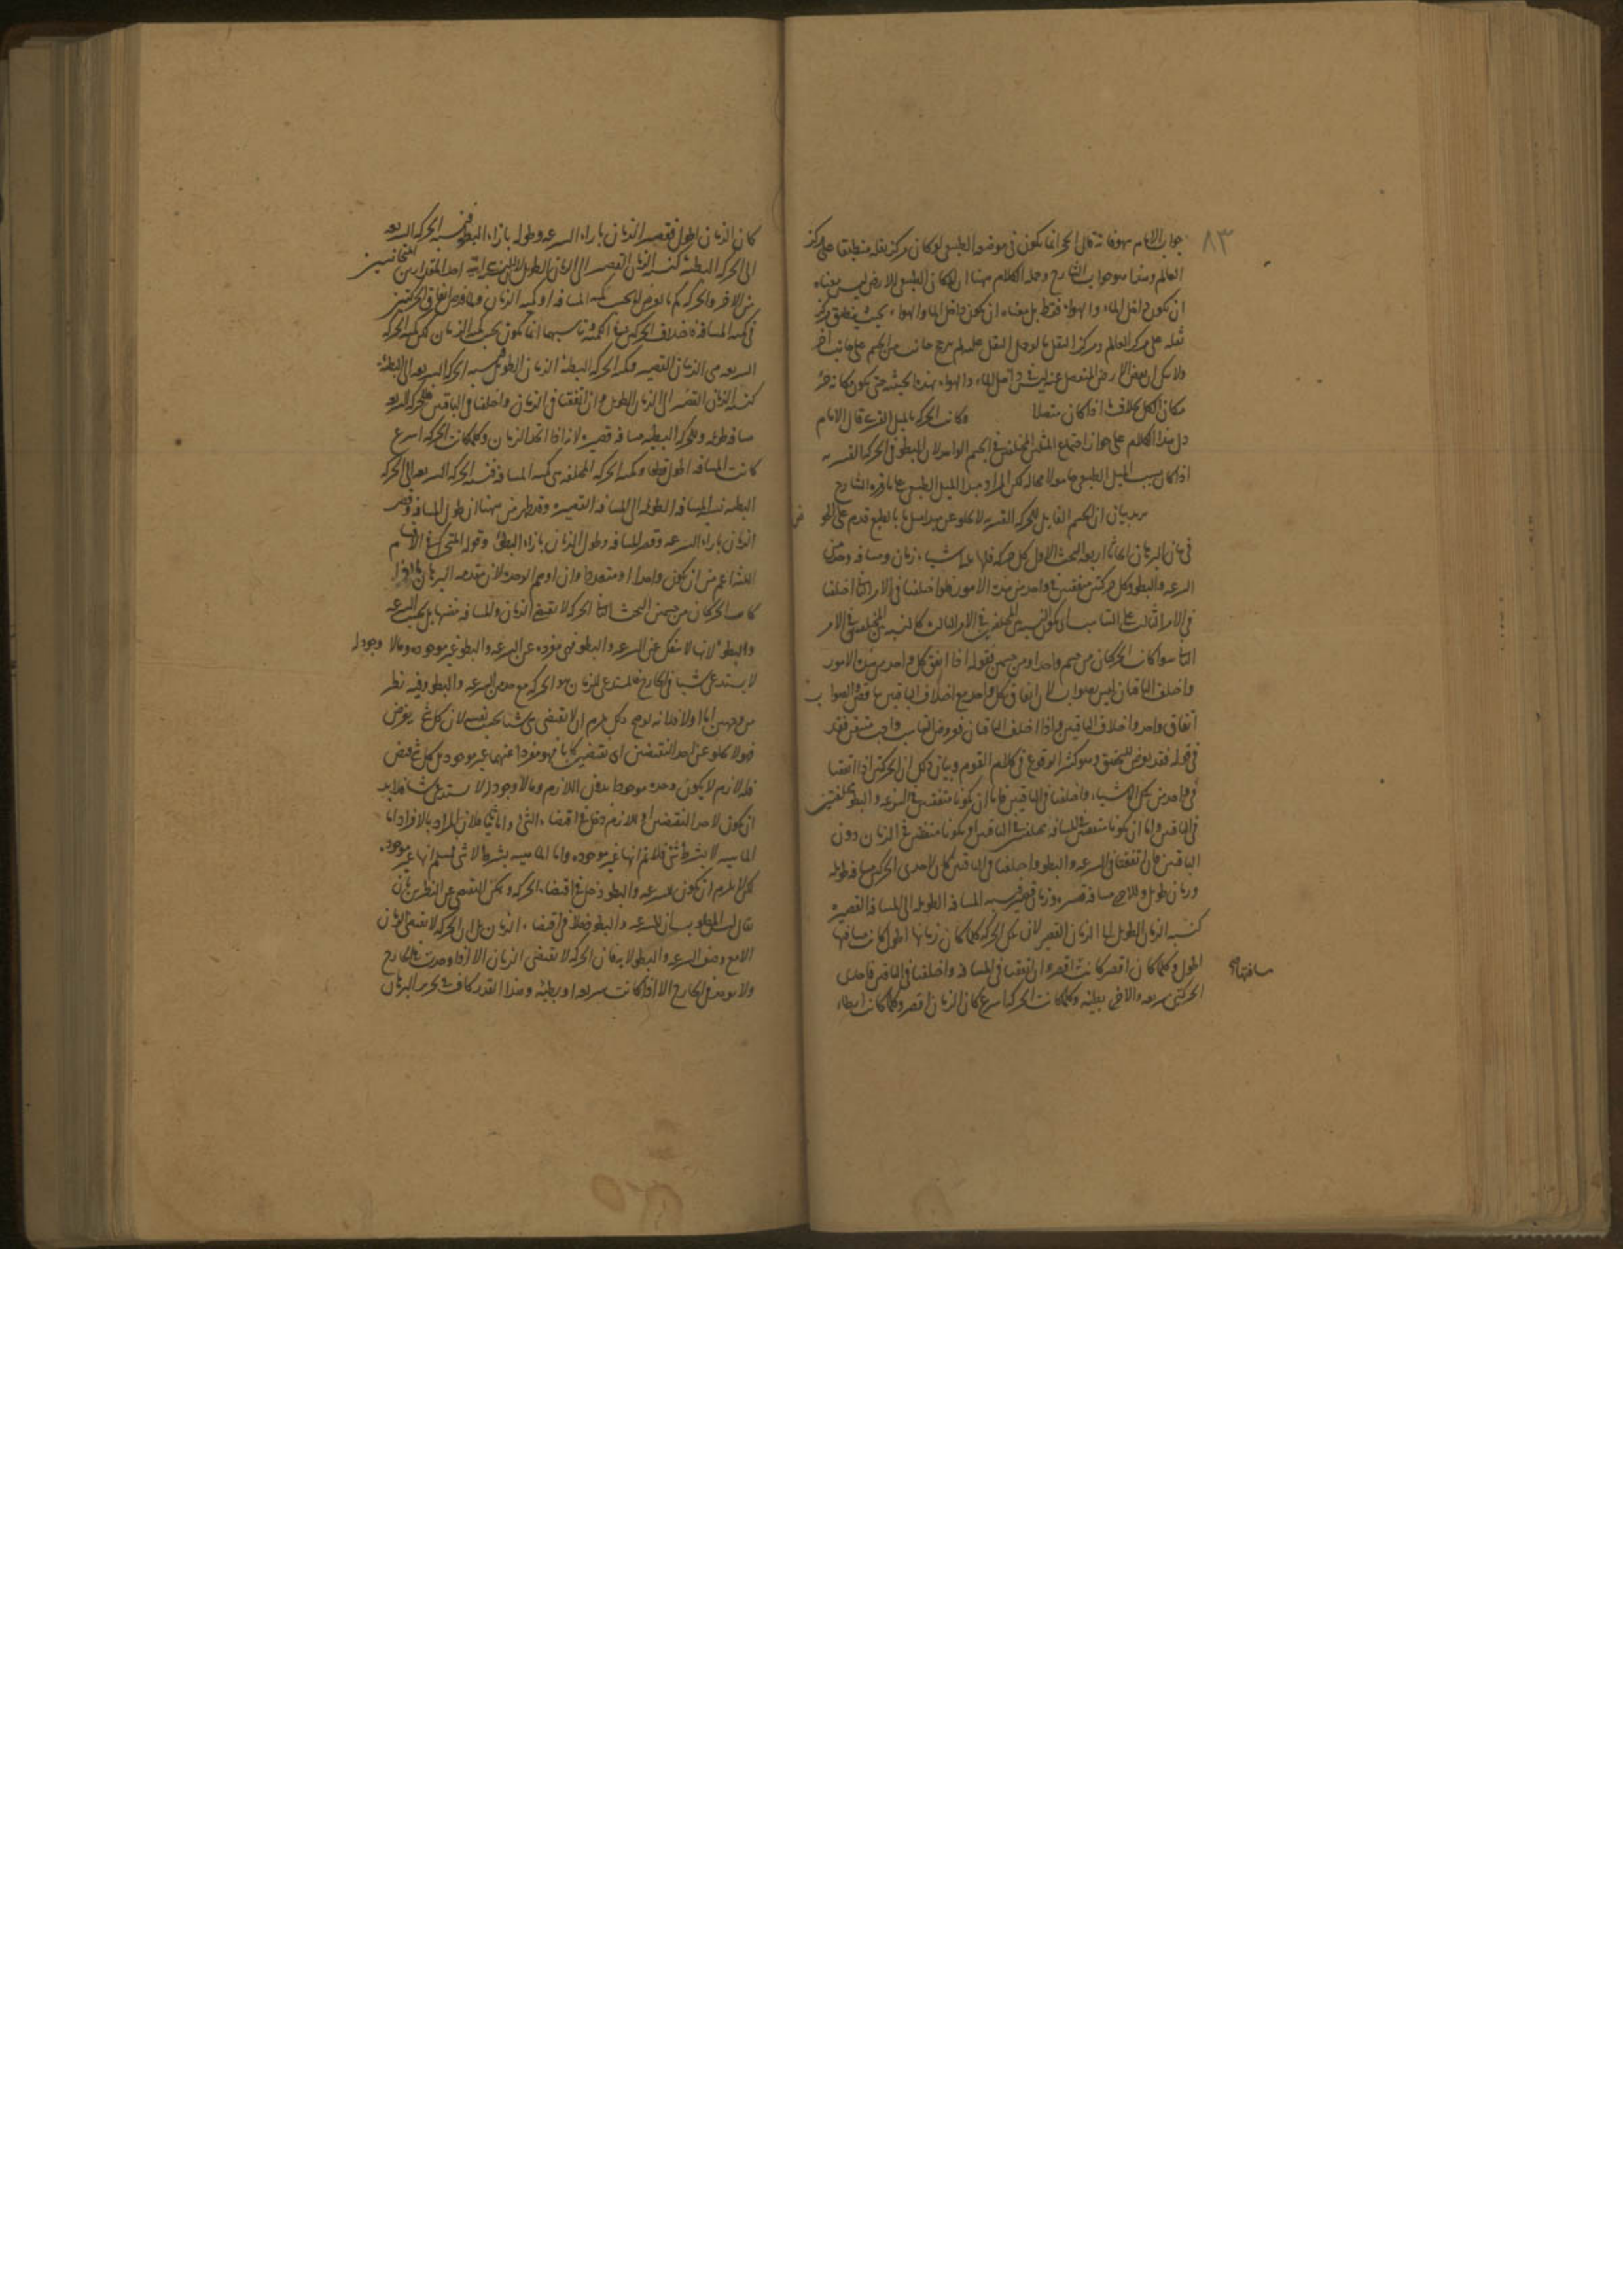 ٨٣
جواب الامام سهو فانه قال الحجر انما يكون في موضعه الطبيعي لو كان مركز ثقله منطبقا على مركز
العالم وهذا هو جواب الشارح وجملة الكلام ههنا ان المكان الطبيعي للارض ليس معناه
ان يكون داخل الماء والهواء فقط بل معناه ان يكون داخل الماء والهواء بحيث ينطبق مركز
ثقله على مركز العالم ومركز الثقل ما لو حمل الثقل عليه لم يرجح جانب من الجسم على جانب اخر
ولا شك ان بعض الارض المنفصل عنه ليس في داخل الماء والهواء بهذه الحيثية حتى يكون مكانه جزء
مكان الكل بخلاف ما اذا كان متصلا وكانت الحركة بالميل القسري قال الامام
دل هذا الكلام على جواز اجتماع الميلين المختلفين في الجسم الواحد لان البطؤ في الحركة القسرية
اذا كان بسبب الميل الطبيعي فاما هو لا محالة لكن المراد مبدأ الميل الطبيعي على ما قرره الشارح
يريد بيان ان الجسم القابل للحركة القسرية لا يخلو عن مبدأ ميل ما بالطبع قدم على الخوض
في بيان البرهان ابحاثا اربعة البحث الاول كل حركة فلها ثلثة اشياء زمان ومسافة وحد من
السرعة والبطؤ وكل حركتين متفقتين في واحد من هذه الامور فلو اختلفتا في الامر الثاني اختلفتا
في الامر الثالث على التناسب اي يكون النسبة بين المختلفين في الامر الثالث كالنسبة بين المختلفين في الامر
الثاني سواء كانت الحركتان من جسم واحد او من جسمين فقوله اذا اتفق كل واحد من هذه الامور
واختلف الباقيان ليس بصواب لان اتفاق كل واحد مع اختلاف الباقيين تناقض والصواب
اتفاق واحد واختلاف الباقيين واذا اختلف الباقيان فعروض التناسب واجب متيقن فقد
في قوله فقد يعرض للتحقيق وهو كثير الوقوع في كلام القوم وبيان ذلك ان الحركتين اذا اتفقتا
في واحد من تلك الاشياء واختلفتا في الباقيين فاما ان تكونا متفقتين في السرعة والبطؤ مختلفتين
في الباقيين واما ان تكونا متفقتين في المسافة مختلفتين في الباقيين او تكونا متفقتين في الزمان دون
الباقيين فان اتفقتا في السرعة والبطؤ واختلفتا في الباقيين كان لاحدى الحركتين مسافة طويلة
وزمان طويل وللاخرى مسافة قصيرة وزمان قصير فنسبة المسافة الطويلة الى المسافة القصيرة
كنسبة الزمان الطويل الى الزمان القصير لان تلك الحركة كلما كان زمانها اطول كانت مسافتها
اطول وكلما كان اقصر كانت اقصر وان اتفقتا في المسافة واختلفتا في الباقيين فاحدى
مسافتها
الحركتين سريعة والاخرى بطيئة وكلما كانت الحركة اسرع كان الزمان اقصر وكلما كانت ابطاء
كان الزمان اطول فقصر الزمان بازاء السرعة وطوله بازاء البطؤ فنسبة الحركة السريعة
الى الحركة البطيئة كنسبة الزمان القصير الى الزمان الطويل احد المقدارين المتجانسين
من الاخر والحركة كم ما يعرض لها بحسب كمية المسافة او كمية الزمان
في كمية المسافة فاختلاف الحركتين في الكمية وتناسبهما انما يكون بحسب كمية الزمان لكن كمية الحركة
السريعة هي الزمان القصير وكمية الحركة البطيئة الزمان الطويل فنسبة الحركة السريعة الى البطيئة
كنسبة الزمان القصير الى الزمان الطويل وان اتفقتا في الزمان واختلفتا في الباقيين فللحركة السريعة
مسافة طويلة وللحركة البطيئة مسافة قصيرة لانه اذا اتحد الزمان وكلما كانت الحركة اسرع
كانت المسافة اطول قطعا وكمية الحركة المختلفة هي كمية المسافة فنسبة الحركة السريعة الى الحركة
البطيئة نسبة المسافة الطويلة الى المسافة القصيرة وقد ظهر من ههنا ان طول المسافة وقصر
الزمان بازاء السرعة وقصر المسافة وطول الزمان بازاء البطؤ وقوله المتحرك في الاقسام
الثلثة اعم من ان يكون واحدا او متعددا وان اوهم الوحدة لان مقدمة البرهان
كانت الحركتان من جسمين البحث الثاني الحركة لا تقتضي الزمان والمسافة بنفسها بل بحسب السرعة
والبطؤ لانها لا تنفك عن السرعة والبطؤ فهي مفردة عن السرعة والبطؤ غير موجودة وما لا وجود له
لا يستدعي شيئا في الخارج فالمستدعي للزمان هو الحركة مع حد من السرعة والبطؤ وفيه نظر
من وجهين اما اولا فلانه لو صح ذلك لزم ان لا يقتضي شئ شيئا بحسب نفسه لان كل شئ يفرض
فهو لا يخلو عن احد النقيضين اي نقيضين كانا فهو مفردا عنهما غير موجود بل كل شئ يفرض
فله لازم لا يكون وحده موجودا بدون اللازم وما لا وجود له لا يستدعي شيئا فلابد
ان يكون لاحد النقيضين او للازم دخل في اقتضاء الشئ واما ثانيا فلان المراد بالافراد اما
الماهية لا بشرط شئ فلا نم انها غير موجودة واما الماهية بشرط لا شئ فمسلم انها غير موجودة
لكن لم يلزم ان يكون للسرعة والبطؤ دخل في اقتضاء الحركة ويمكن التقصي عن النظرين بان
يقال ليس المطلوب بيان ان للسرعة والبطؤ دخلا في اقتضاء الزمان بل ان الحركة لا تقتضي الزمان
الا مع وصف السرعة والبطؤ لا يقال ان الحركة لا تقتضي الزمان الا اذا وجدت في الخارج
ولا يوجد في الخارج الا اذا كانت سريعة او بطيئة وهذا القدر كاف في تحرير البرهان